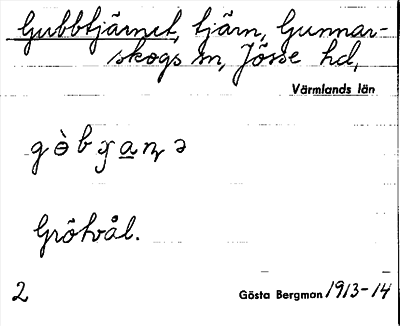 Gubbtjärnet, tjärn, Gunnar-
skogs sn, Jösse hd,
Värmlands län
Grötvål.
2 Gösta Bergman 1913-14